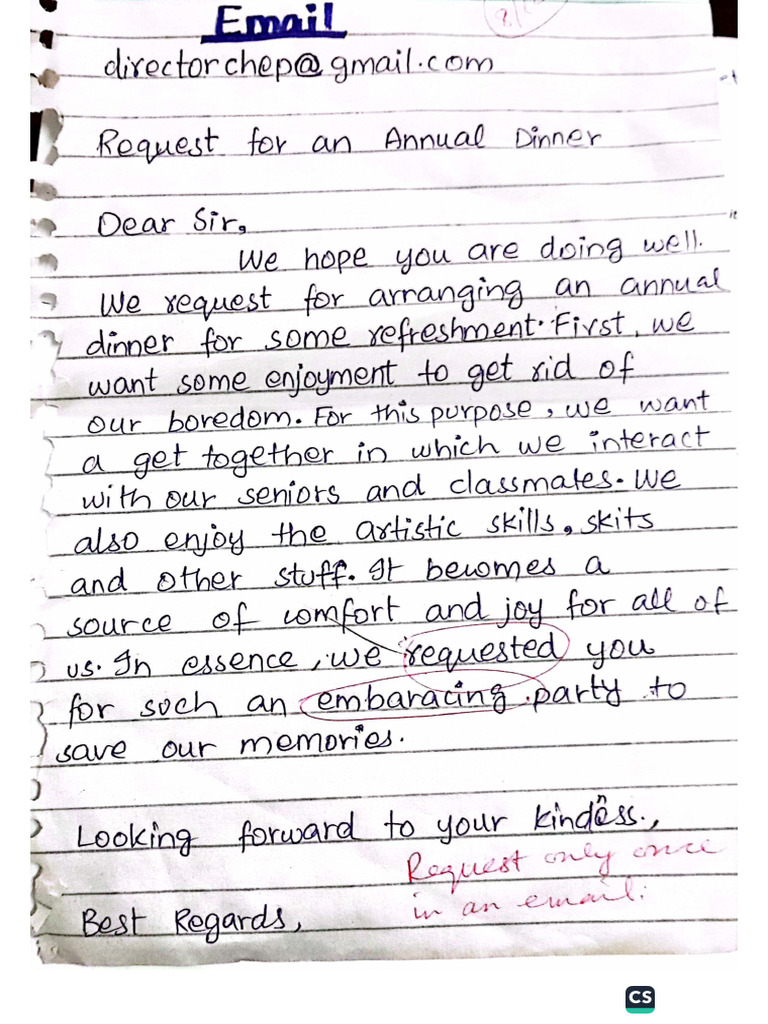 Email
directorchep@gmail.com
Request for an Annual Dinner
Dear Sir,
We hope you are doing well.
We request for arranging an annual
dinner for some refreshment. First, we
want some enjoyment to get rid of
our boredom. For this purpose, we want
a get together in which we interact
with our seniors and classmates. We
also enjoy the artistic skills, skits
and other stuff. It becomes a
source of comfort and joy for all of
us. In essence, we requested you
for such an embaracing party to
save our memories.
Looking forward to your kindness.,
Request only once
in an email.
Best Regards,
CS